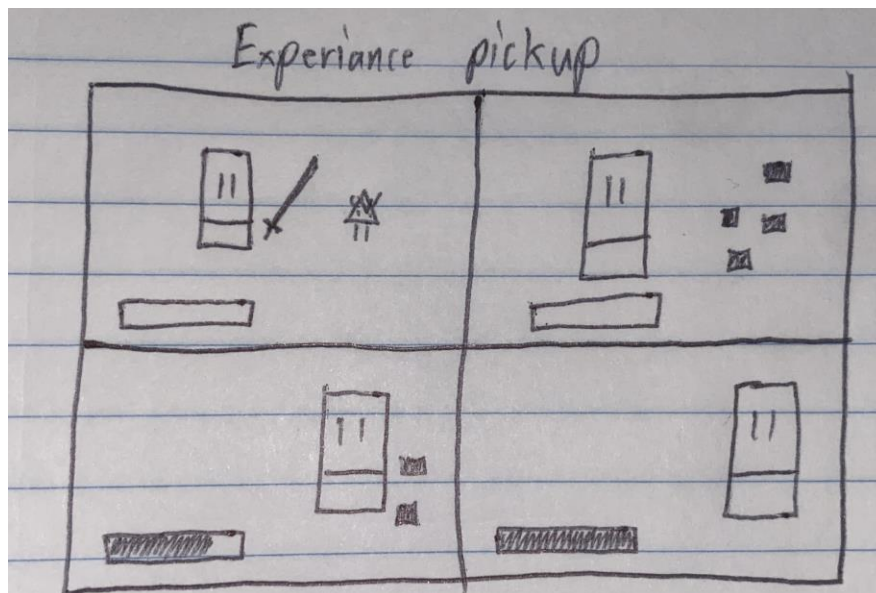 Experiance pickup